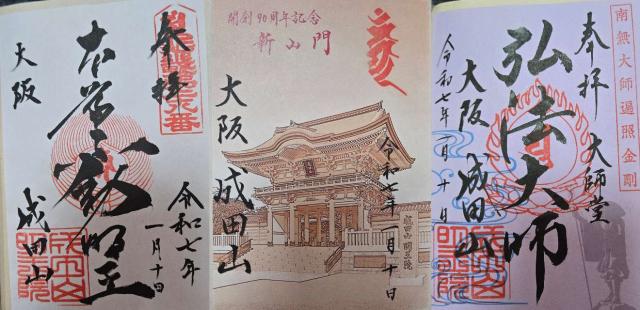 奉拝
本尊不動明王
大阪
成田山
令和七年
一月十日
開創90周年記念
新山門
大阪 成田山
令和七年 一月十日
成田山 明王院
南無大師遍照金剛
奉拝 大師堂
弘法大師
大阪 成田山
令和七年一月十日